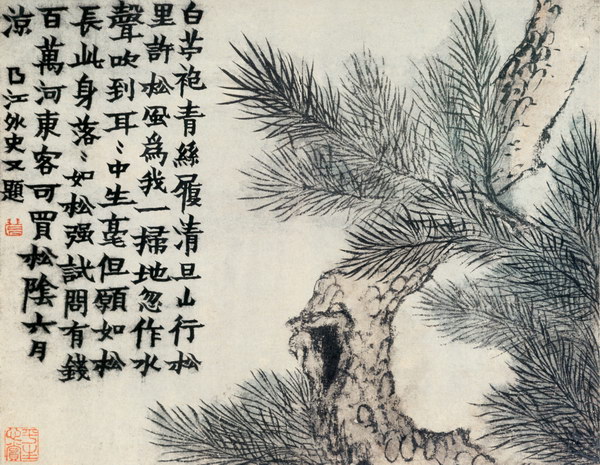 白苧袍青絲履清旦山行松
里許松風爲我一掃地忽作水
聲吹到耳〻中生毫但願如松
長此身落〻如松强試問有錢
百萬河東客可買松陰六月
涼 江外史又題
平生心賞